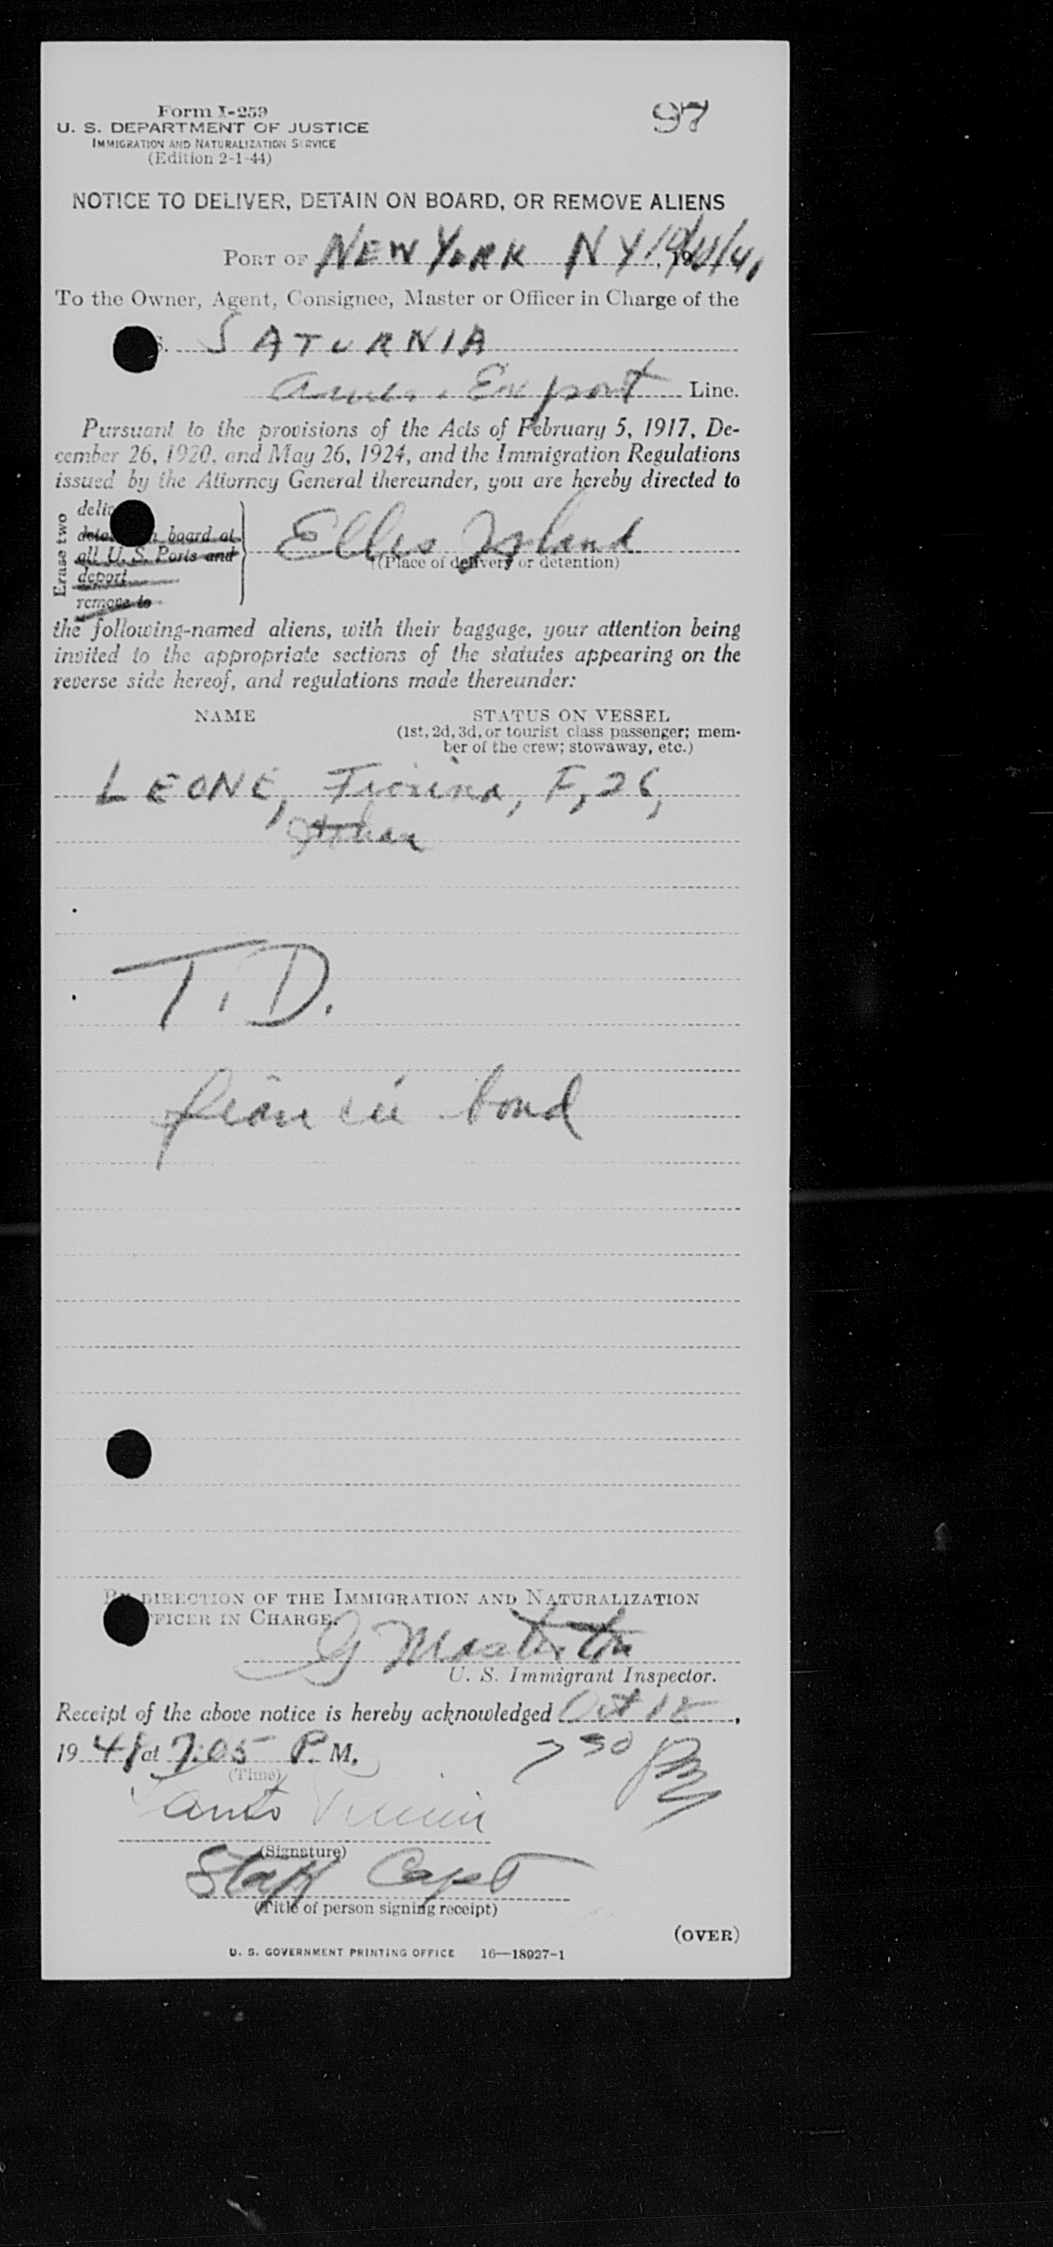 Form I-259
97
U. S. DEPARTMENT OF JUSTICE
IMMIGRATION AND NATURALIZATION SERVICE
(Edition 2-1-44)
NOTICE TO DELIVER, DETAIN ON BOARD, OR REMOVE ALIENS
PORT OF NEW YORK NY
To the Owner, Agent, Consignee, Master or Officer in Charge of the
S. SATURNIA
Amer. Export Line.
Pursuant to the provisions of the Acts of February 5, 1917, De-
cember 26, 1920, and May 26, 1924, and the Immigration Regulations
issued by the Attorney General thereunder, you are hereby directed to
Erase two
board at
all U. S. Ports and
deport
remove to
Ellis Island
(Place of delivery or detention)
the following-named aliens, with their baggage, your attention being
invited to the appropriate sections of the statutes appearing on the
reverse side hereof, and regulations made thereunder:
NAME STATUS ON VESSEL
(1st, 2d, 3d, or tourist class passenger; mem-
ber of the crew; stowaway, etc.)
LEONE, Fiorina, F, 26,
T. D.
bond
DIRECTION OF THE IMMIGRATION AND NATURALIZATION
FICER IN CHARGE.
G Masterton
U. S. Immigrant Inspector.
Receipt of the above notice is hereby acknowledged Oct
19 at 7:05 P. M.
(Time)
7 30
Santo
(Signature)
Staff Capt
(Title of person signing receipt)
(OVER)
U. S. GOVERNMENT PRINTING OFFICE 16—18927-1